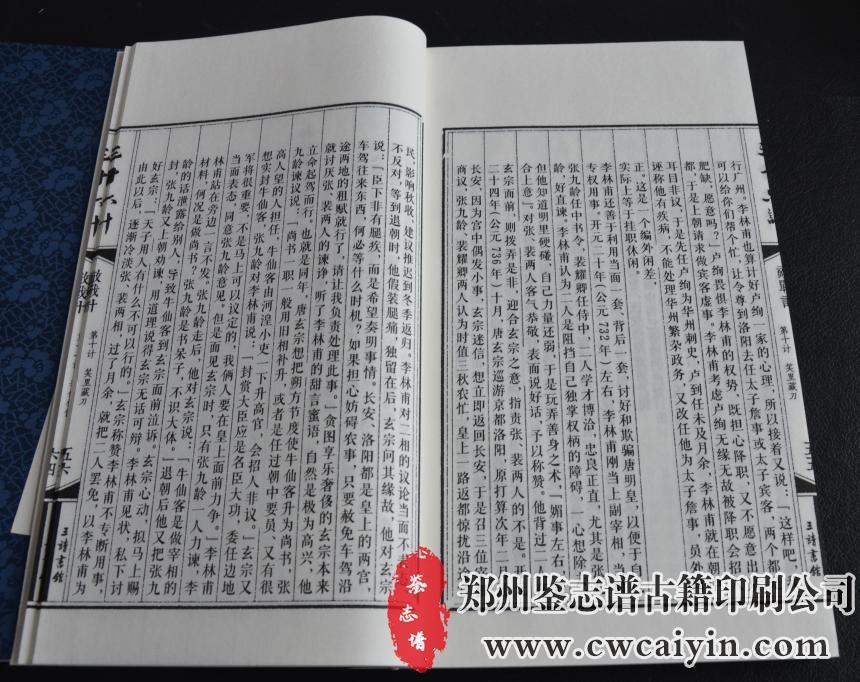 行广州，李林甫也算计好卢绚一家的心理，所以接着又说：“这样吧，
可以给你们帮个忙，让令尊到洛阳去任太子詹事或太子宾客，两个都
肥缺、愿意吗？”卢绚畏惧李林甫的权势，既担心降职、又不愿意出
于是上朝请求做宾客虚事。李林甫考虑卢绚无缘无故被降职会招
耳目非议，于是先任卢绚为华州刺史，卢到任未及月余，李林甫就在朝
诬称他有疾病，不能处理华州繁杂政务，又改任他为太子詹事，员外
正。这是一个编外闲差，
实际上等于挂职休闲。
李林甫还善于利用当面一套、背后一套，讨好和欺骗唐明皇，以便于自
专权用事。开元二十年（公元732年）左右，李林甫刚当上副宰相，当
张九龄任中书令，裴耀卿任侍中，二人学才博洽，忠良正直，尤其是张
龄，好直谏，李林甫认为二人是阻挡自己独掌权柄的障碍，一心想除
但他知道明里硬碰，自己力量还弱，于是玩弄善身之术，“媚事左右，
合上意”。对张、裴两人客气恭敬，表面说好话，予以称赞。他背过二人
玄宗面前，则拨弄是非，迎合玄宗之意，指责张、裴两人的不是。开
二十四年（公元736年）十月，唐玄宗巡游京都洛阳，原打算次年二月
长安，因为宫中偶发小事，玄宗迷信，想立即返回长安，于是召三位宰
商议，张九龄、裴耀卿两人认为时值三秋农忙，皇上一路返都惊扰沿途
第十计 笑里藏刀
民，影响秋收，建议推迟到冬季返归。李林甫对二相的议论当面不
不反对，等到退朝时，他假装腿痛，独留在后，玄宗问其缘故，他对玄宗
说：“臣下非有腿疾，而是希望奏明事情。长安、洛阳都是皇上的两宫，
车驾往来东西，何必等什么时机？如果担心妨碍农事，只要赦免车驾沿
途两地的租赋就行了，请让我负责处理此事。”贪图享乐奢侈的玄宗本来
就讨厌张、裴两人的谏诤，听了李林甫的甜言蜜语，自然是极为高兴，
立命起驾而行。也就是同年，唐玄宗想把朔方节度使牛仙客升为尚书，张
九龄谏议说：“尚书一职一般用旧相补升，或者是任过朝中要员、又有很
高人望的人担任，牛仙客出河湟小吏，一下升高官，会招人非议。”玄宗又
想实封牛仙客，张九龄对李林甫说：“封赏大臣应是名臣大功，委任边地
军将很重要，不是马上可以议定的，我俩人要在皇上面前力争。”李林甫
当面表态，同意张九龄意见，但是面见玄宗时，只有张九龄一人力谏，李
林甫站在旁边一言不发。张九龄走后，他对玄宗说：“牛仙客是做宰相的
材料，何况是做尚书？张九龄是书呆子，不识大体。”退朝后他又把张九
龄的话泄露给别人，导致牛仙客到玄宗面前泣诉，玄宗心动，拟马上赐
封，张九龄又上朝劝谏，用道理说得玄宗无话可辩。李林甫见状，私下讨
好玄宗：“天子用人有什么不可以行的。”玄宗称赞李林甫不专断用事，
由此以后，逐渐冷淡张、裴两相，过了月余，就把二人罢免，以李林甫为
敌战计
第十计 笑里藏刀
五六
六四
三读书馆
鉴志谱
郑州鉴志谱古籍印刷公司
www.cwcaiyin.com